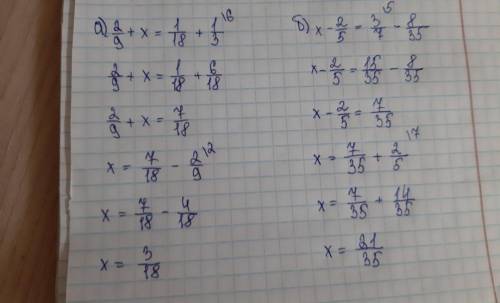 а) 2/9 + x = 1/18 + 1/3 \6
2/9 + x = 1/18 + 6/18
2/9 + x = 7/18
x = 7/18 - 2/9 \2
x = 7/18 - 4/18
x = 3/18
б) x - 2/5 = 3/7 \5 - 8/35
x - 2/5 = 15/35 - 8/35
x - 2/5 = 7/35
x = 7/35 + 2/5 \7
x = 7/35 + 14/35
x = 21/35